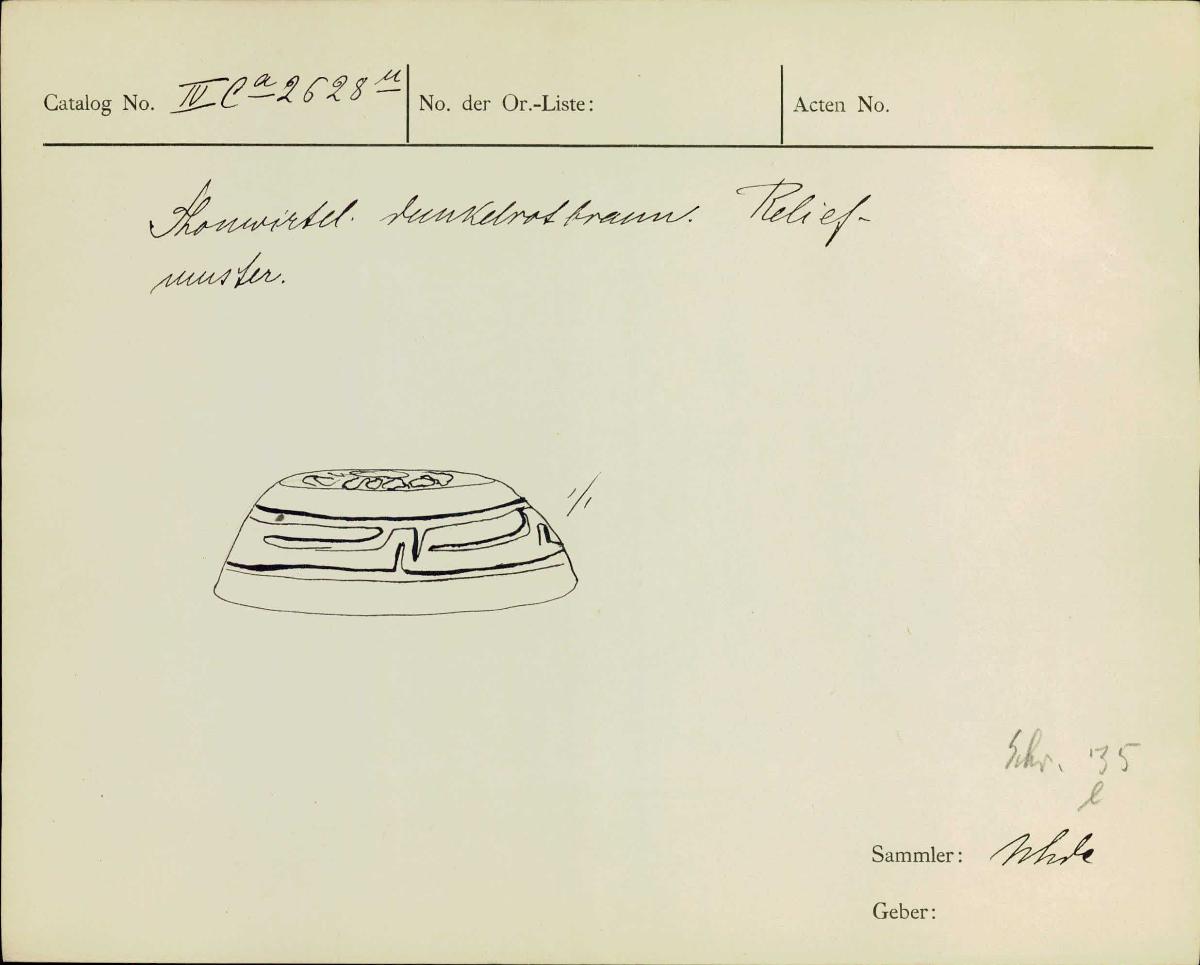 Catalog No. IV Ca 2628 u No. der Or.-Liste: Acten No.
Thonwirtel. dunkelrotbraun. Relief-
muster.
1/1
Schr. 35
l
Sammler: Uhde
Geber: